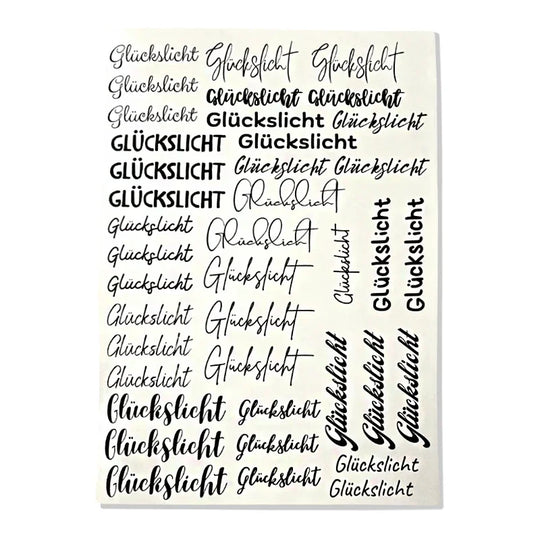 Glückslicht Glückslicht Glückslicht
Glückslicht Glückslicht Glückslicht
Glückslicht Glückslicht Glückslicht
GLÜCKSLICHT Glückslicht
GLÜCKSLICHT Glückslicht Glückslicht
GLÜCKSLICHT Glückslicht
Glückslicht Glückslicht
Glückslicht Glückslicht
Glückslicht Glückslicht
Glückslicht Glückslicht
Glückslicht
Glückslicht
Glückslicht Glückslicht
Glückslicht Glückslicht
Glückslicht Glückslicht
Glückslicht
Glückslicht
Glückslicht
Glückslicht
Glückslicht
Glückslicht
Glückslicht
Glückslicht